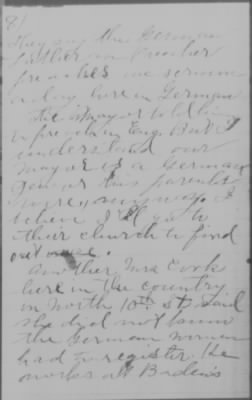 9/
They say the German
Lutheran Preacher
preaches one sermon
a day here in German
the Mayor told him
to preach in Eng. But I
understand our
Mayor is a German
or his parents
were, anyway I
believe I'll go to
their church to find
out more.
Another, Mrs Cook
here in the country
in North 10th St. Said
she did not know
the German women
had to register. He
works at Baden's